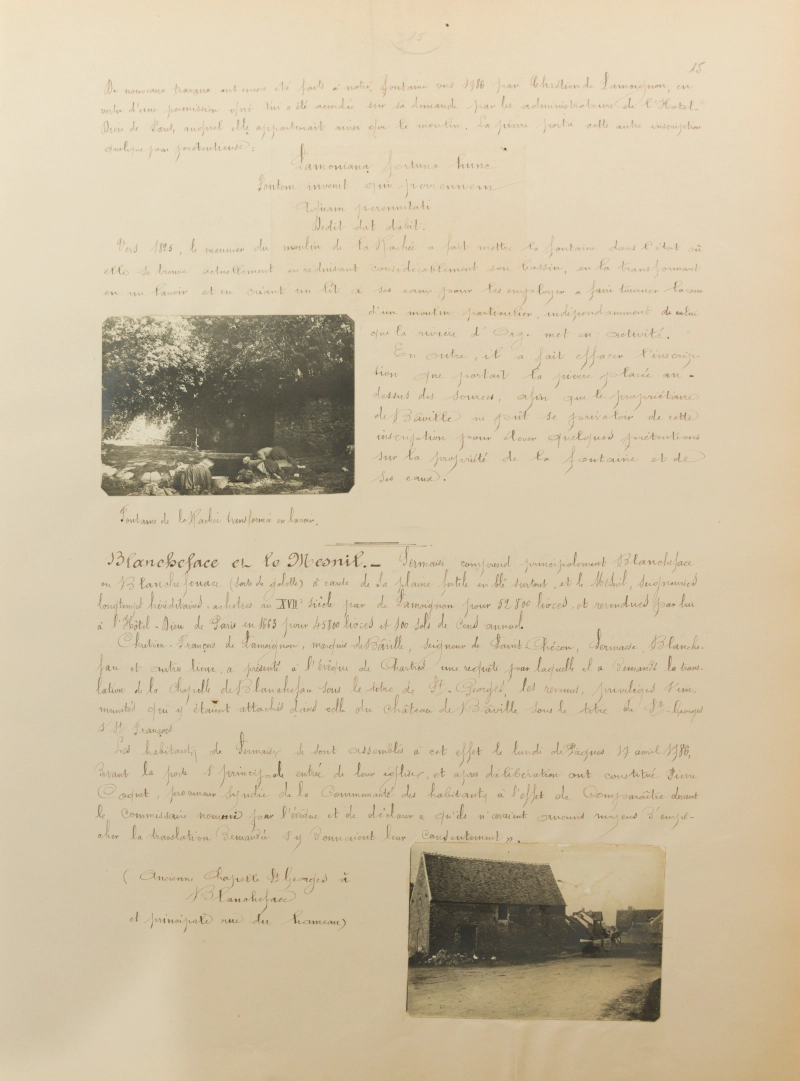 15
De nouveaux travaux ont encore été faits à notre fontaine vers 1786 par Chrétien de Lamoignon, en
vertu d'une permission qui lui a été accordée sur sa demande par les administrateurs de l'Hôtel-
Dieu de Paris, auquel elle appartenait ainsi que le moulin. La pierre porta cette autre inscription
quelque peu prétentieuse :
Lamoniana fortuna hunc
Fontem invenit qui perennem
perennitati
Dedit dat dabit.
Vers 1825, le meunier du moulin de la Rachée a fait mettre la fontaine dans l'état où
elle se trouve actuellement en réduisant considérablement son bassin, en la transformant
en un lavoir et en créant un lit à ses eaux pour les employer à faire tourner la roue
d'un moulin particulier, indépendamment de celui
que la rivière d'Orge met en activité.
En outre, il a fait effacer l'inscrip-
tion que portait la pierre placée au-
dessus des sources, afin que le propriétaire
de Bâville ne pût se prévaloir de cette
inscription pour élever quelques prétentions
sur la propriété de la fontaine et de
ses eaux.
Fontaine de la Rachée transformée en lavoir.
Blancheface et le Mesnil. - Sermaise comprend principalement Blancheface
ou Blanchefouace (sorte de galette) à cause de sa plaine fertile en blé surtout, et le Mesnil, seigneuries
longtemps héréditaires, achetées au XVIIe siècle par de Lamoignon pour 52 800 livres et revendues par lui
à l'Hôtel-Dieu de Paris en 1663 pour 45 800 livres et 100 sols de cens annuel.
Chrétien-François de Lamoignon, marquis de Bâville, seigneur de Saint-Chéron, Sermaise, Blanche-
fau et autres lieux, a présenté à l'Evêque de Chartres une requête par laquelle il a demandé la trans-
lation de la Chapelle de Blanchefau sous le titre de St-Georges, les revenus, privilèges & im-
munités qui y étaient attachés dans celle du Château de Bâville sous le titre de St-Georges
& St François
Les habitants de Sermaise se sont assemblés à cet effet le lundi de Pâques 17 avril 1786,
devant la porte & principale entrée de leur église, et après délibération ont constitué Pierre
Coquet, procureur syndic de la Communauté des habitants à l'effet de Comparaître devant
le Commissaire nommé par l'évêque et de déclarer « qu'ils n'avaient aucuns moyens d'empê-
cher la translation demandée & y donnaient leur consentement ».
( Ancienne Chapelle St Georges à
Blancheface
et principale rue du hameau)